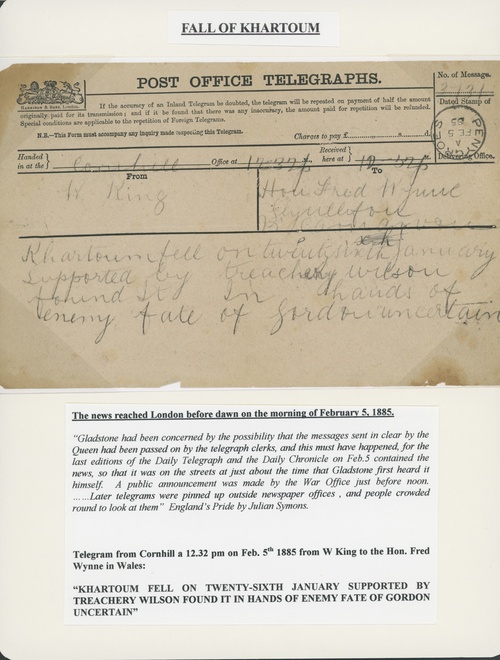 FALL OF KHARTOUM
POST OFFICE TELEGRAPHS.
If the accuracy of an Inland Telegram be doubted, the telegram will be repeated on payment of half the amount
originally paid for its transmission; and if it be found that there was any inaccuracy, the amount paid for repetition will be refunded.
Special conditions are applicable to the repetition of Foreign Telegrams.
N.B.—This Form must accompany any inquiry made respecting this Telegram.
Charges to pay £
No. of Message.
Dated Stamp of
PENYGROES
A
FE 5
85
Delivering Office.
Handed in at the } Cornhill Office at 12.32 p.
Received here at }
From
W King
To
Hon Fred Wynne
Khartoum fell on twenty sixth January
supported by treachery wilson
found it in hands of
enemy fate of gordon uncertain
The news reached London before dawn on the morning of February 5, 1885.
“Gladstone had been concerned by the possibility that the messages sent in clear by the
Queen had been passed on by the telegraph clerks, and this must have happened, for the
last editions of the Daily Telegraph and the Daily Chronicle on Feb.5 contained the
news, so that it was on the streets at just about the time that Gladstone first heard it
himself. A public announcement was made by the War Office just before noon.
……Later telegrams were pinned up outside newspaper offices , and people crowded
round to look at them” England's Pride by Julian Symons.
Telegram from Cornhill a 12.32 pm on Feb. 5th 1885 from W King to the Hon. Fred
Wynne in Wales:
“KHARTOUM FELL ON TWENTY-SIXTH JANUARY SUPPORTED BY
TREACHERY WILSON FOUND IT IN HANDS OF ENEMY FATE OF GORDON
UNCERTAIN”